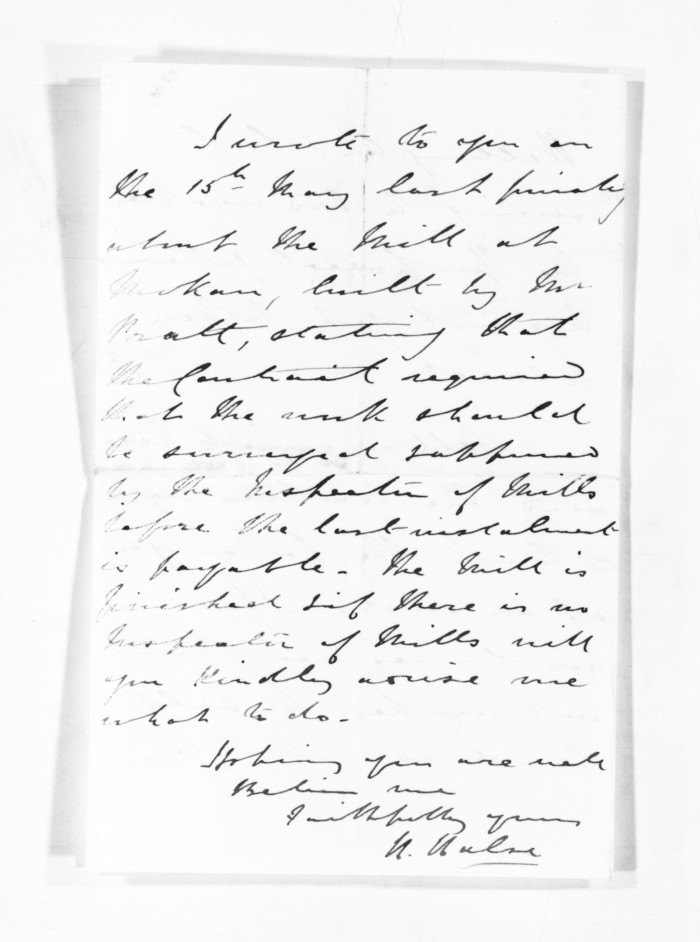 I wrote to you on
the 15th May last privately
about the Mill at
Mokau, built by Mr
Pratt, stating that
the Contract required
that the work should
be surveyed & approved
by the Inspector of Mills
before the last instalment
is payable - The Mill is
finished & if there is no
Inspector of Mills will
you kindly advise me
what to do -
Hoping you are well
Believe me
Faithfully yours
H. Halse